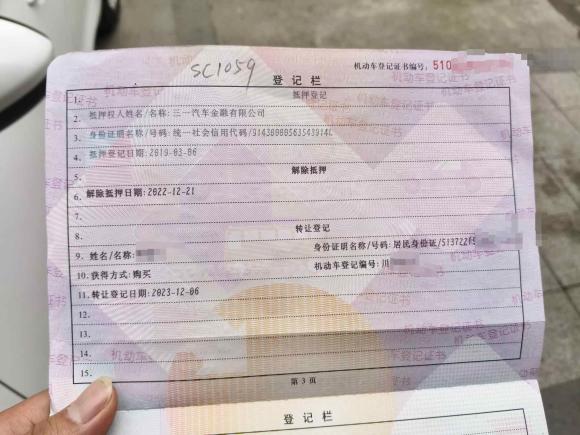 SC1059
机动车登记证书编号: 510
登记栏
1. 抵押登记
2. 抵押权人姓名/名称: 三一汽车金融有限公司
3. 身份证明名称/号码: 统一社会信用代码/91430000563543914L
4. 抵押登记日期: 2019-03-06
5. 解除抵押
6. 解除抵押日期: 2022-12-21
7.
8. 转让登记
9. 姓名/名称: 身份证明名称/号码: 居民身份证/513722
10. 获得方式: 购买 机动车登记编号: 川
11. 转让登记日期: 2023-12-06
12.
13.
14.
15.
第 3 页
登记栏